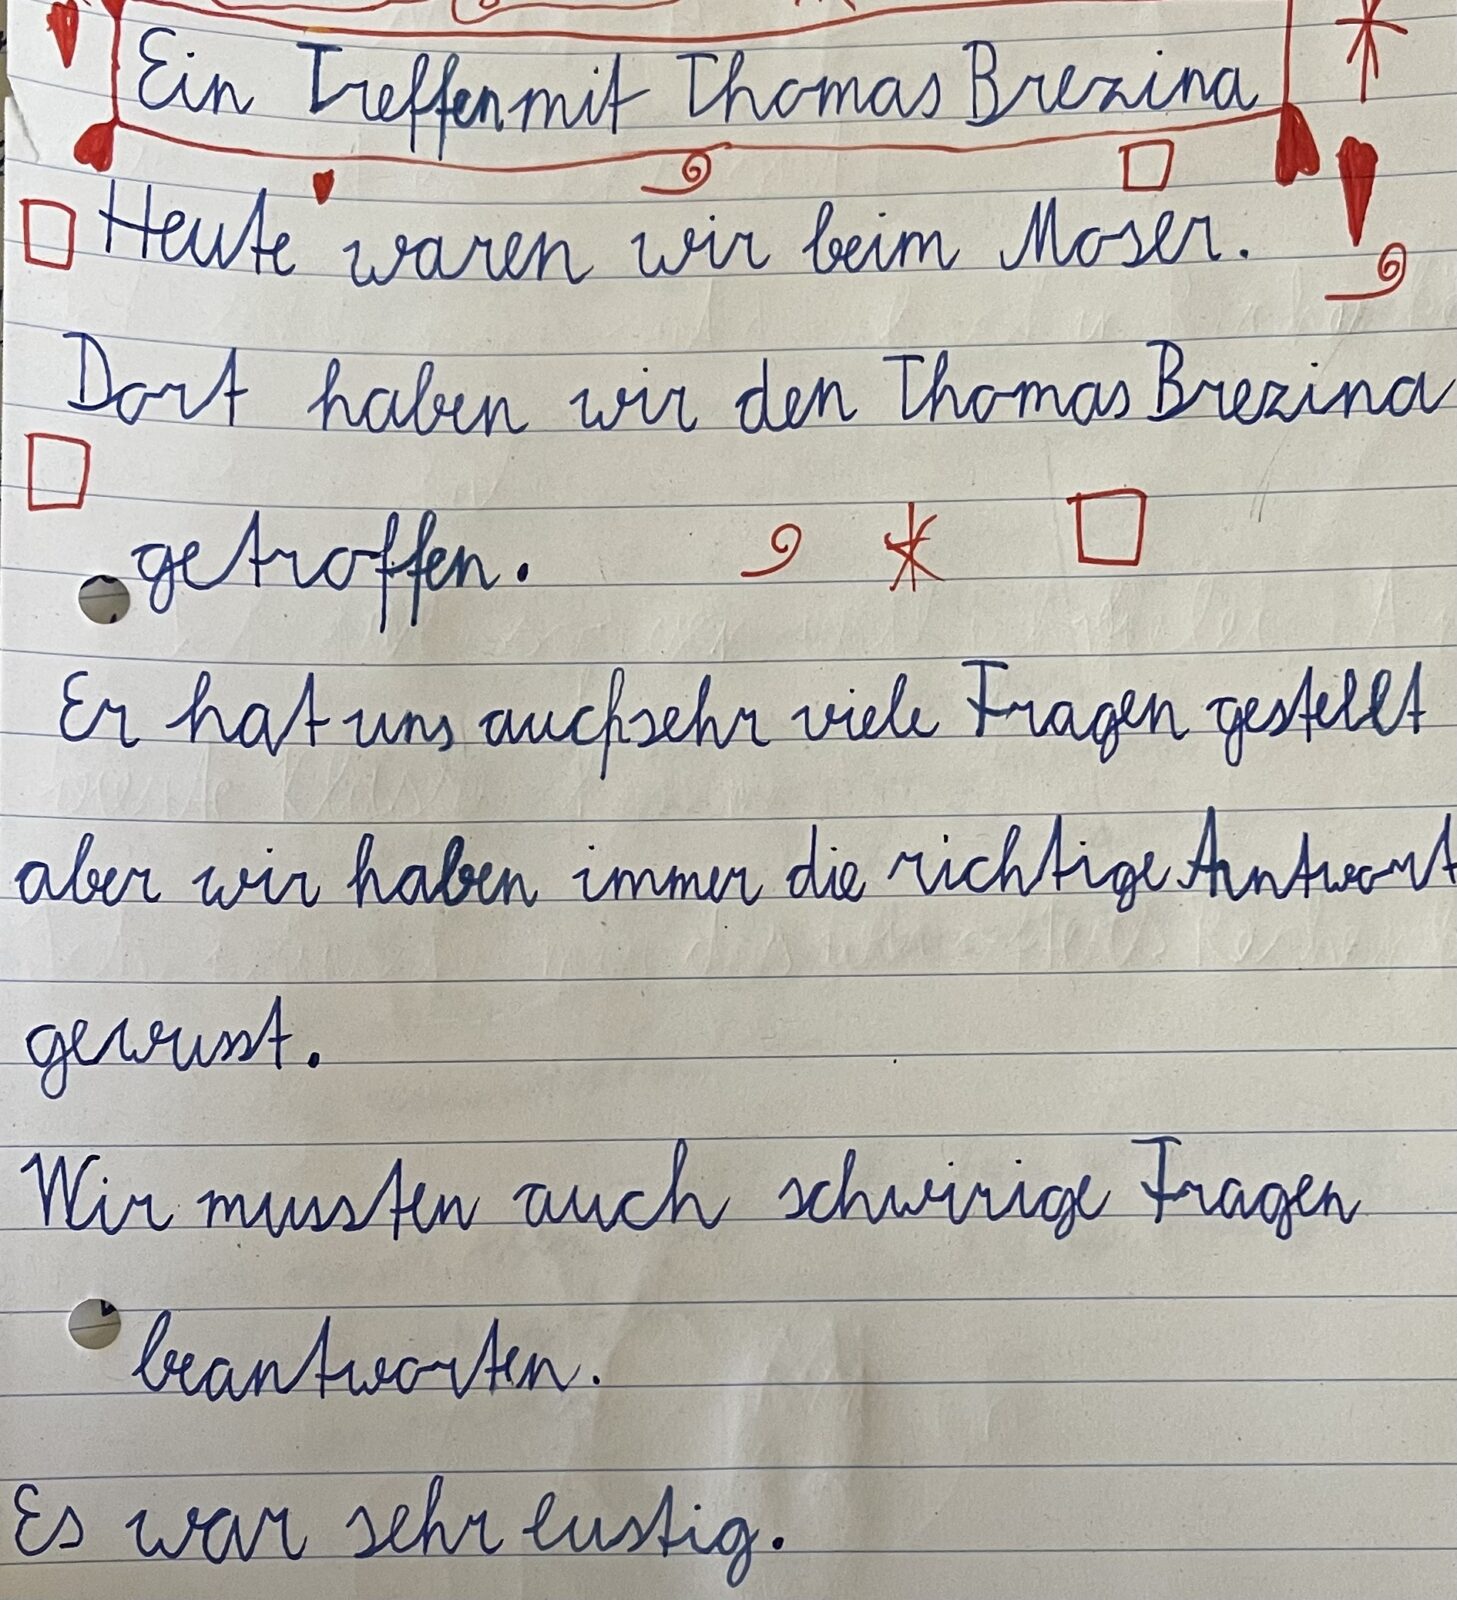 Ein Treffen mit Thomas Brezina
Heute waren wir beim Moser.
Dort haben wir den Thomas Brezina
getroffen.
Er hat uns auch sehr viele Fragen gestellt
aber wir haben immer die richtige Antwort
gewusst.
Wir mussten auch schwirige Fragen
beantworten.
Es war sehr lustig.